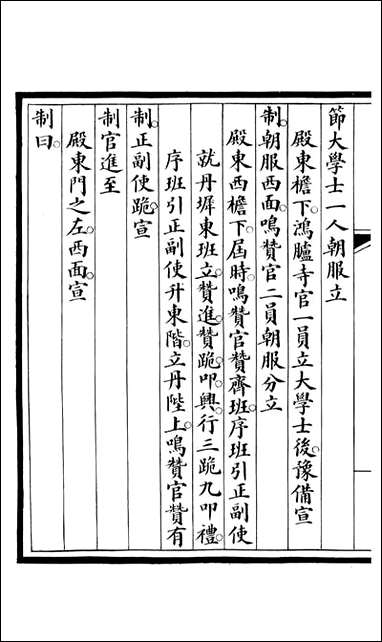 節大學士一人朝服立
殿東檐下。鴻臚寺官一員立大學士後。豫備宣
制。朝服西面。鳴贊官二員朝服分立
殿東西檐下。屆時。鳴贊官贊齊班。序班引正副使
就丹墀東班立。贊進。贊跪。叩。興。行三跪九叩禮。
序班引正副使升東階。立丹陛上。鳴贊官贊有
制。正副使跪。宣
制官進至
殿東門之左。西面。宣
制曰。